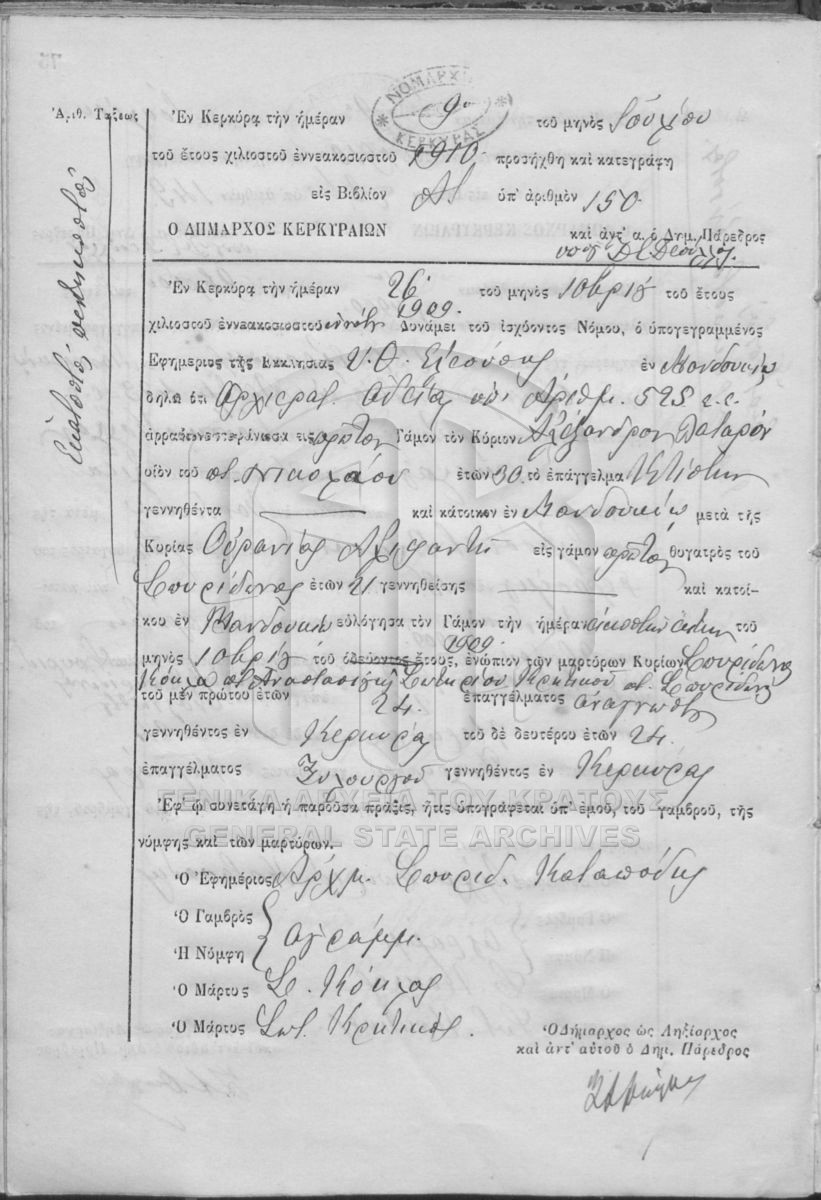 Ἀριθ. Τάξεως
Ἑκατοστὸς πεντηκοστὸς
ΝΟΜΑΡΧΙΑ
ΚΕΡΚΥΡΑΣ
Ἐν Κερκύρᾳ τὴν ἡμέραν 9ην τοῦ μηνὸς Ἰουλίου
τοῦ ἔτους χιλιοστοῦ ἐννεακοσιοστοῦ 1910 προσήχθη καὶ κατεγράφη
εἰς Βιβλίον ὑπ' ἀριθμὸν 150
Ο ΔΗΜΑΡΧΟΣ ΚΕΡΚΥΡΑΙΩΝ καὶ ἀντ' α. ὁ Δημ. Πάρεδρος
Ἐν Κερκύρᾳ τὴν ἡμέραν 26 τοῦ μηνὸς 10βρίου τοῦ ἔτους
1909
χιλιοστοῦ ἐννεακοσιοστοῦ ἐννάτου Δυνάμει τοῦ ἰσχύοντος Νόμου, ὁ ὑπογεγραμμένος
Ἐφημέριος τῆς Ἐκκλησίας Υ. Θ. ἐν Μανδουκίῳ
δηλῶ ὅτι Ἀρχιερατ. Ἀδείᾳ ὑπ' Ἀριθμ. 525 ἐ. ἐ.
ἀρραβωνεστεφάνωσα εἰς πρῶτον Γάμον τὸν Κύριον Ἀλέξανδρον
υἱὸν τοῦ π. Νικολάου ἐτῶν 30 τὸ ἐπάγγελμα Κτίστην
γεννηθέντα καὶ κάτοικον ἐν Μανδουκίῳ μετὰ τῆς
Κυρίας Οὐρανίας εἰς γάμον πρῶτον θυγατρὸς τοῦ
Σπυρίδωνος ἐτῶν 21 γεννηθείσης καὶ κατοί-
κου ἐν Μανδουκίῳ εὐλόγησα τὸν Γάμον τὴν ἡμέραν εἰκοστὴν ἕκτην τοῦ
1909
μηνὸς 10βρίου τοῦ ὁδεύοντος ἔτους, ἐνώπιον τῶν μαρτύρων Κυρίων Σπυρίδωνος
Κόκλα π. Ἀναστασίου Σωτηρίου Κρητικοῦ π. Σπυρίδωνος
τοῦ μὲν πρώτου ἐτῶν 24 ἐπαγγέλματος ἀναγνώστου
γεννηθέντος ἐν Κερκύρᾳ τοῦ δὲ δευτέρου ἐτῶν 24
ἐπαγγέλματος Ξυλουργοῦ γεννηθέντος ἐν Κερκύρᾳ
Ἐφ' ᾧ συνετάγη ἡ παροῦσα πρᾶξις, ἥτις ὑπογράφεται ὑπ' ἐμοῦ, τοῦ γαμβροῦ, τῆς
νύμφης καὶ τῶν μαρτύρων.
ΓΕΝΙΚΑ ΑΡΧΕΙΑ ΤΟΥ ΚΡΑΤΟΥΣ
GENERAL STATE ARCHIVES
Ὁ Ἐφημέριος Ἀρχμ. Σπυρίδ. Καταπόδης
Ὁ Γαμβρὸς
Ἡ Νύμφη ἀγράμμ.
Ὁ Μάρτυς Σ. Κόκλας
Ὁ Μάρτυς Σωτ. Κρητικὸς
Ὁ Δήμαρχος ὡς Ληξίαρχος
καὶ ἀντ' αὐτοῦ ὁ Δημ. Πάρεδρος